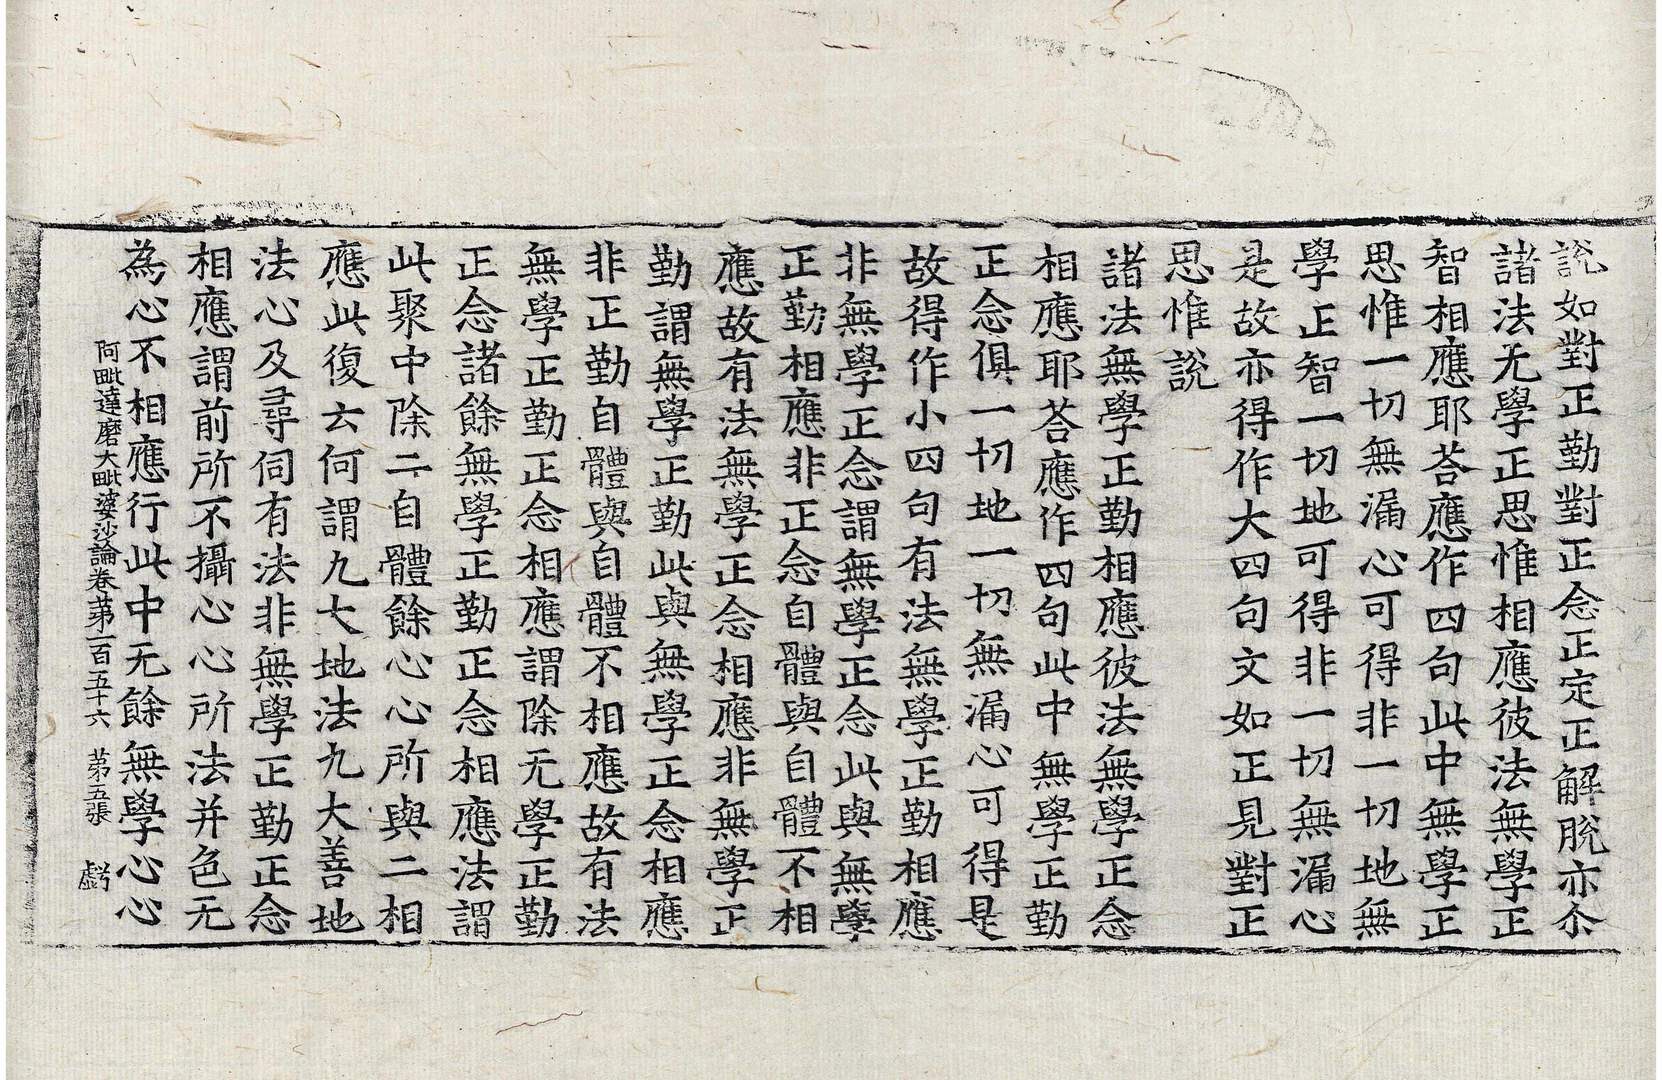 說如對正勤對正念正定正解脫亦尒
諸法无學正思惟相應彼法無學正
智相應耶荅應作四句此中無學正
思惟一切無漏心可得非一切地無
學正智一切地可得非一切無漏心
是故亦得作大四句文如正見對正
思惟說
諸法無學正勤相應彼法無學正念
相應耶荅應作四句此中無學正勤
正念俱一切地一切無漏心可得是
故得作小四句有法無學正勤相應
非無學正念謂無學正念此與無學
正勤相應非正念自體與自體不相
應故有法無學正念相應非無學正
勤謂無學正勤此與無學正念相應
非正勤自體與自體不相應故有法
無學正勤正念相應謂除无學正勤
正念諸餘無學正勤正念相應法謂
此聚中除二自體餘心心所與二相
應此復云何謂九大地法九大善地
法心及尋伺有法非無學正勤正念
相應謂前所不攝心心所法并色无
為心不相應行此中无餘無學心心
阿毗達磨大毗婆沙論卷苐一百五十六 苐五張 虧